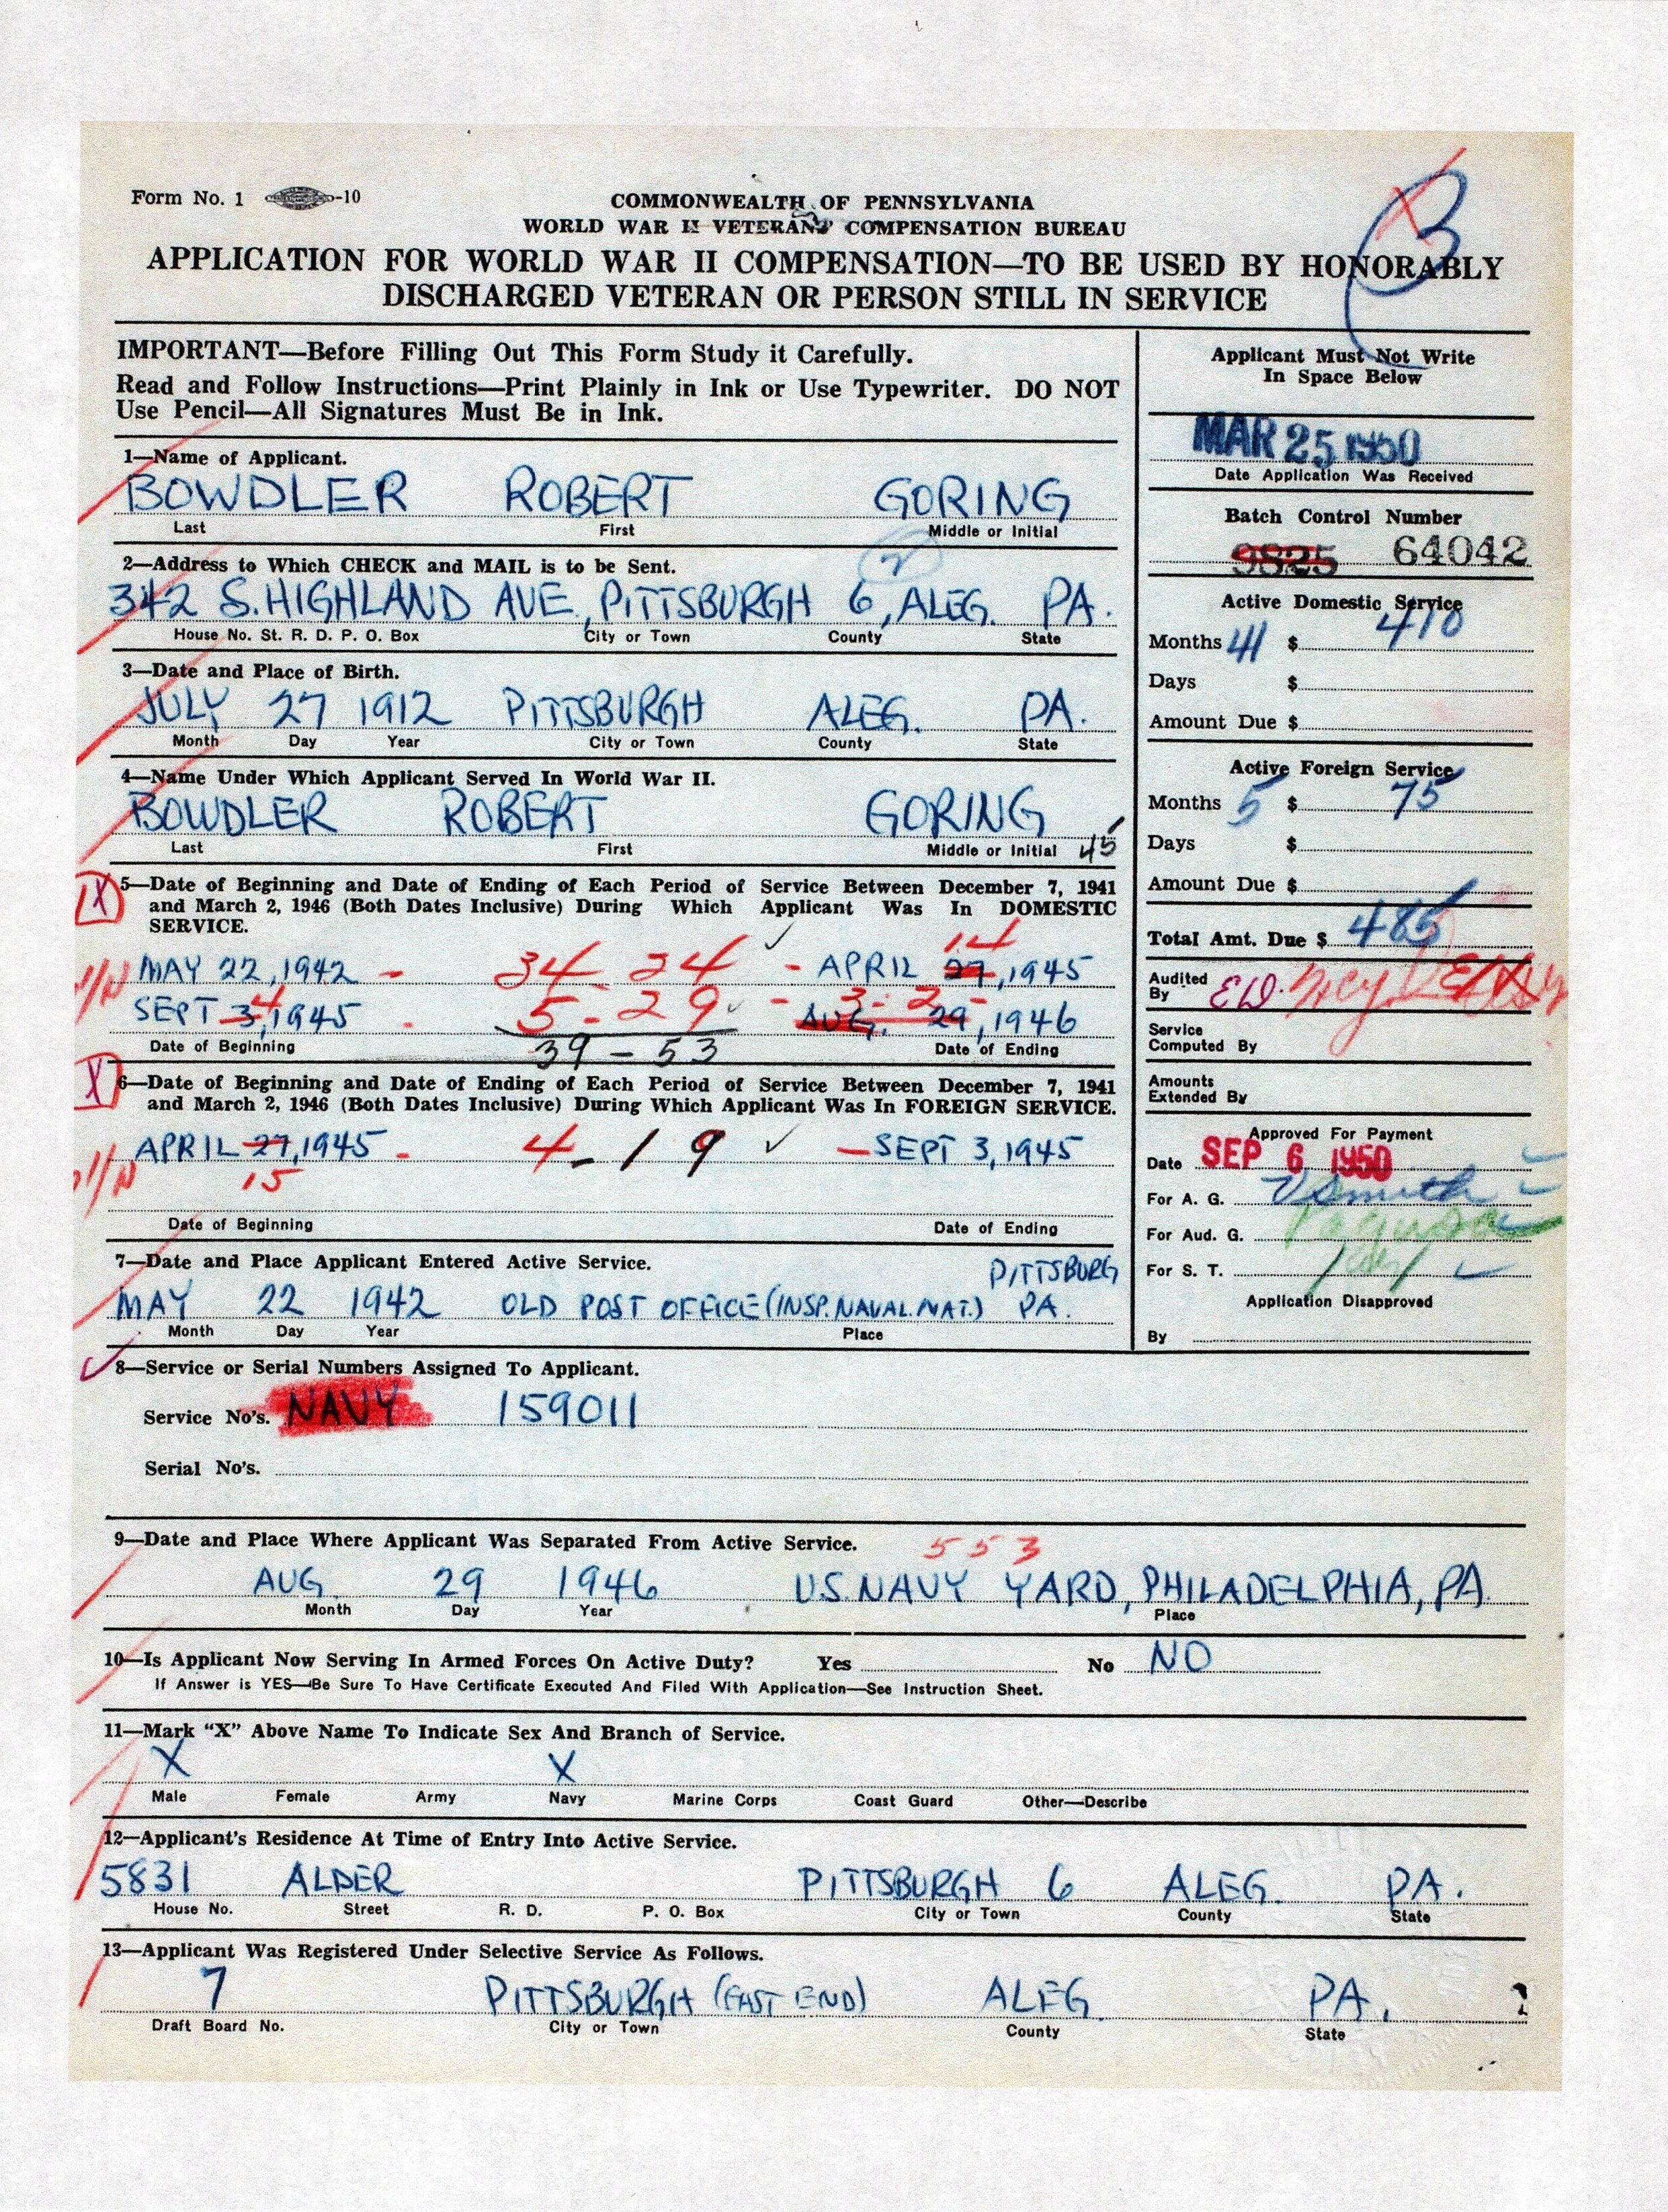 Form No. 1 -10
COMMONWEALTH OF PENNSYLVANIA
WORLD WAR II VETERANS' COMPENSATION BUREAU
APPLICATION FOR WORLD WAR II COMPENSATION—TO BE USED BY HONORABLY
DISCHARGED VETERAN OR PERSON STILL IN SERVICE
B
IMPORTANT—Before Filling Out This Form Study it Carefully.
Read and Follow Instructions—Print Plainly in Ink or Use Typewriter. DO NOT
Use Pencil—All Signatures Must Be in Ink.
1—Name of Applicant.
BOWDLER ROBERT GORING
Last First Middle or Initial
2—Address to Which CHECK and MAIL is to be Sent.
2
342 S. HIGHLAND AVE., PITTSBURGH 6, ALEG. PA.
House No. St. R. D. P. O. Box City or Town County State
3—Date and Place of Birth.
JULY 27 1912 PITTSBURGH ALEG. PA.
Month Day Year City or Town County State
4—Name Under Which Applicant Served In World War II.
BOWDLER ROBERT GORING
Last First Middle or Initial 45
X
5—Date of Beginning and Date of Ending of Each Period of Service Between December 7, 1941
and March 2, 1946 (Both Dates Inclusive) During Which Applicant Was In DOMESTIC
SERVICE.
14
MAY 22, 1942 - 34 - 24 - APRIL 27, 1945
4
SEPT 3, 1945 - 5 - 29 - 3-2- AUG. 29, 1946
Date of Beginning 39 - 53 Date of Ending
X
6—Date of Beginning and Date of Ending of Each Period of Service Between December 7, 1941
and March 2, 1946 (Both Dates Inclusive) During Which Applicant Was In FOREIGN SERVICE.
APRIL 27, 1945 - 4 - 19 - SEPT 3, 1945
15
Date of Beginning Date of Ending
7—Date and Place Applicant Entered Active Service.
PITTSBURG
MAY 22 1942 OLD POST OFFICE (INSP. NAVAL. MAT.) PA.
Month Day Year Place
Applicant Must Not Write
In Space Below
MAR 25 1950
Date Application Was Received
Batch Control Number
9825 64042
Active Domestic Service
Months 41 $ 410
Days $
Amount Due $
Active Foreign Service
Months 5 $ 75
Days $
Amount Due $
Total Amt. Due $ 485
Audited
By
Service
Computed By
Amounts
Extended By
Approved For Payment
Date SEP 6 1950
For A. G. V Smith
For Aud. G.
For S. T.
Application Disapproved
By
8—Service or Serial Numbers Assigned To Applicant.
Service No's. NAVY 159011
Serial No's.
9—Date and Place Where Applicant Was Separated From Active Service.
553
AUG 29 1946 U.S. NAVY YARD, PHILADELPHIA, PA.
Month Day Year Place
10—Is Applicant Now Serving In Armed Forces On Active Duty? Yes No NO
If Answer is YES—Be Sure To Have Certificate Executed And Filed With Application—See Instruction Sheet.
11—Mark "X" Above Name To Indicate Sex And Branch of Service.
X X
Male Female Army Navy Marine Corps Coast Guard Other—Describe
12—Applicant's Residence At Time of Entry Into Active Service.
5831 ALDER PITTSBURGH 6 ALEG. PA.
House No. Street R. D. P. O. Box City or Town County State
13—Applicant Was Registered Under Selective Service As Follows.
7 PITTSBURGH (EAST END) ALEG. PA.
Draft Board No. City or Town County State